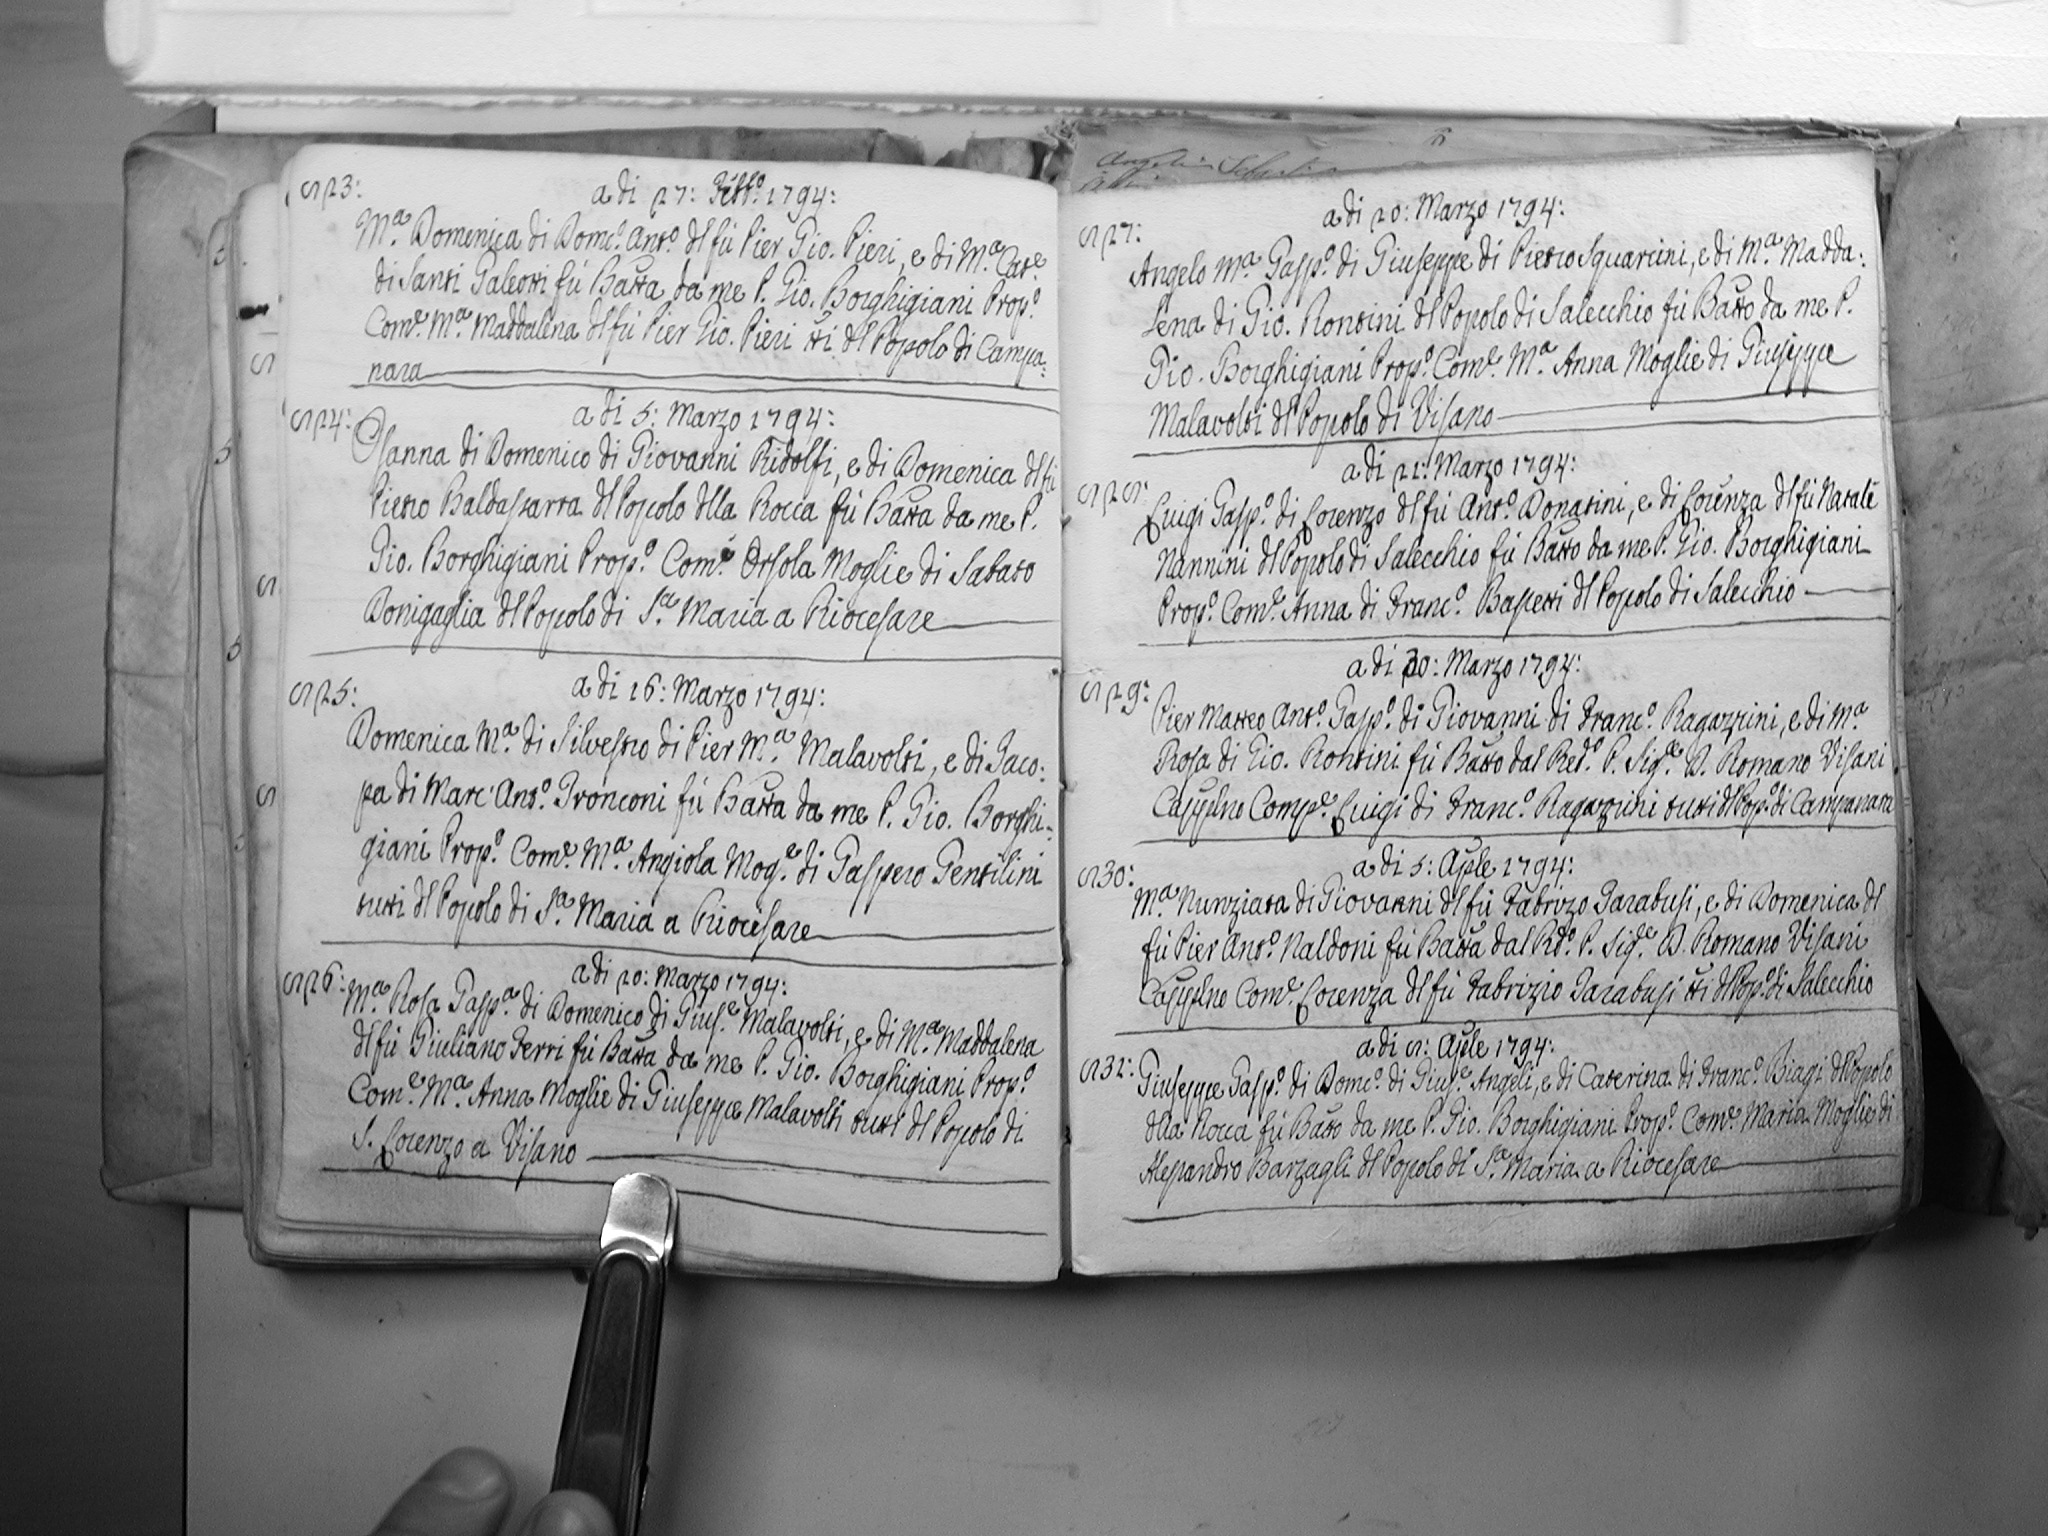 823:
a di 27: Febb.º 1794:
M.ª Domenica di Dom.º Ant.º del fù Pier Gio. Pieri, e di M.ª Cat.ª
di Santi Galeotti fù Batta da me P. Gio. Borghigiani Prop.º
Com.e M.ª Maddalena del fù Pier Gio. Pieri tti del Popolo di Campa:
nara
824:
a di 5: Marzo 1794:
Osanna di Domenico di Giovanni Ridolfi, e di Domenica del fù
Pietro Baldassarra del Popolo della Rocca fù Batta da me P.
Gio. Borghigiani Prop.º Com.e Orsola Moglie di Sabato
Donigaglia del Popolo di S.ª Maria a Riocesare
825:
a di 16: Marzo 1794:
Domenica M.ª di Silvestro di Pier M.ª Malavolti, e di Jaco:
pa di Marc'Ant.º Tronconi fù Batta da me P. Gio. Borghi:
giani Prop.º Com.e M.ª Angiola Mog.e di Gaspero Gentilini
tutti del Popolo di S.ª Maria a Riocesare
826:
a di 20: Marzo 1794:
M.ª Rosa Gasp.ª di Domenico di Gius.e Malavolti, e di M.ª Maddalena
del fù Giuliano Ferri fù Batta da me P. Gio. Borghigiani Prop.º
Com.e M.ª Anna Moglie di Giuseppe Malavolti tutti del Popolo di
S. Lorenzo a Visano
a di 20: Marzo 1794:
827:
Angelo M.ª Gasp.º di Giuseppe di Pietro Squarcini, e di M.ª Madda:
lena di Gio. Rontini del Popolo di Salecchio fù Batto da me P.
Gio. Borghigiani Prop.º Com.e M.ª Anna Moglie di Giuseppe
Malavolti del Popolo di Visano
a di 21: Marzo 1794:
828:
Luigi Gasp.º di Lorenzo del fù Ant.º Donatini, e di Lorenza del fù Natale
Nannini del Popolo di Salecchio fù Batto da me P. Gio. Borghigiani
Prop.º Com.e Anna di Franc.º Bassetti del Popolo di Salecchio
a di 30: Marzo 1794:
829:
Pier Matteo Ant.º Gasp.º di Giovanni di Franc.º Ragazzini, e di M.ª
Rosa di Gio. Rontini fù Batto dal Red.º P. Sig.e D. Romano Visani
Cappllno Comp.e Luigi di Franc.º Ragazzini tutti del Pop.º di Campanara
a di 5: Aprle 1794:
830:
M.ª Nunziata di Giovanni del fù Fabrizo Tarabusi, e di Domenica del
fù Pier Ant.º Naldoni fù Batta dal Rd.º P. Sig.e D. Romano Visani
Cappllno Com.e Lorenza del fù Fabrizio Tarabusi tti del Pop.º di Salecchio
a di 8: Aprle 1794:
831:
Giuseppe Gasp.º di Dom.º di Gius.e Angeli, e di Caterina di Franc.º Biagi del Popolo
della Rocca fù Batto da me P. Gio. Borghigiani Prop.º Com.e Maria Moglie di
Alessandro Barzagli del Popolo di S.ª Maria a Riocesare